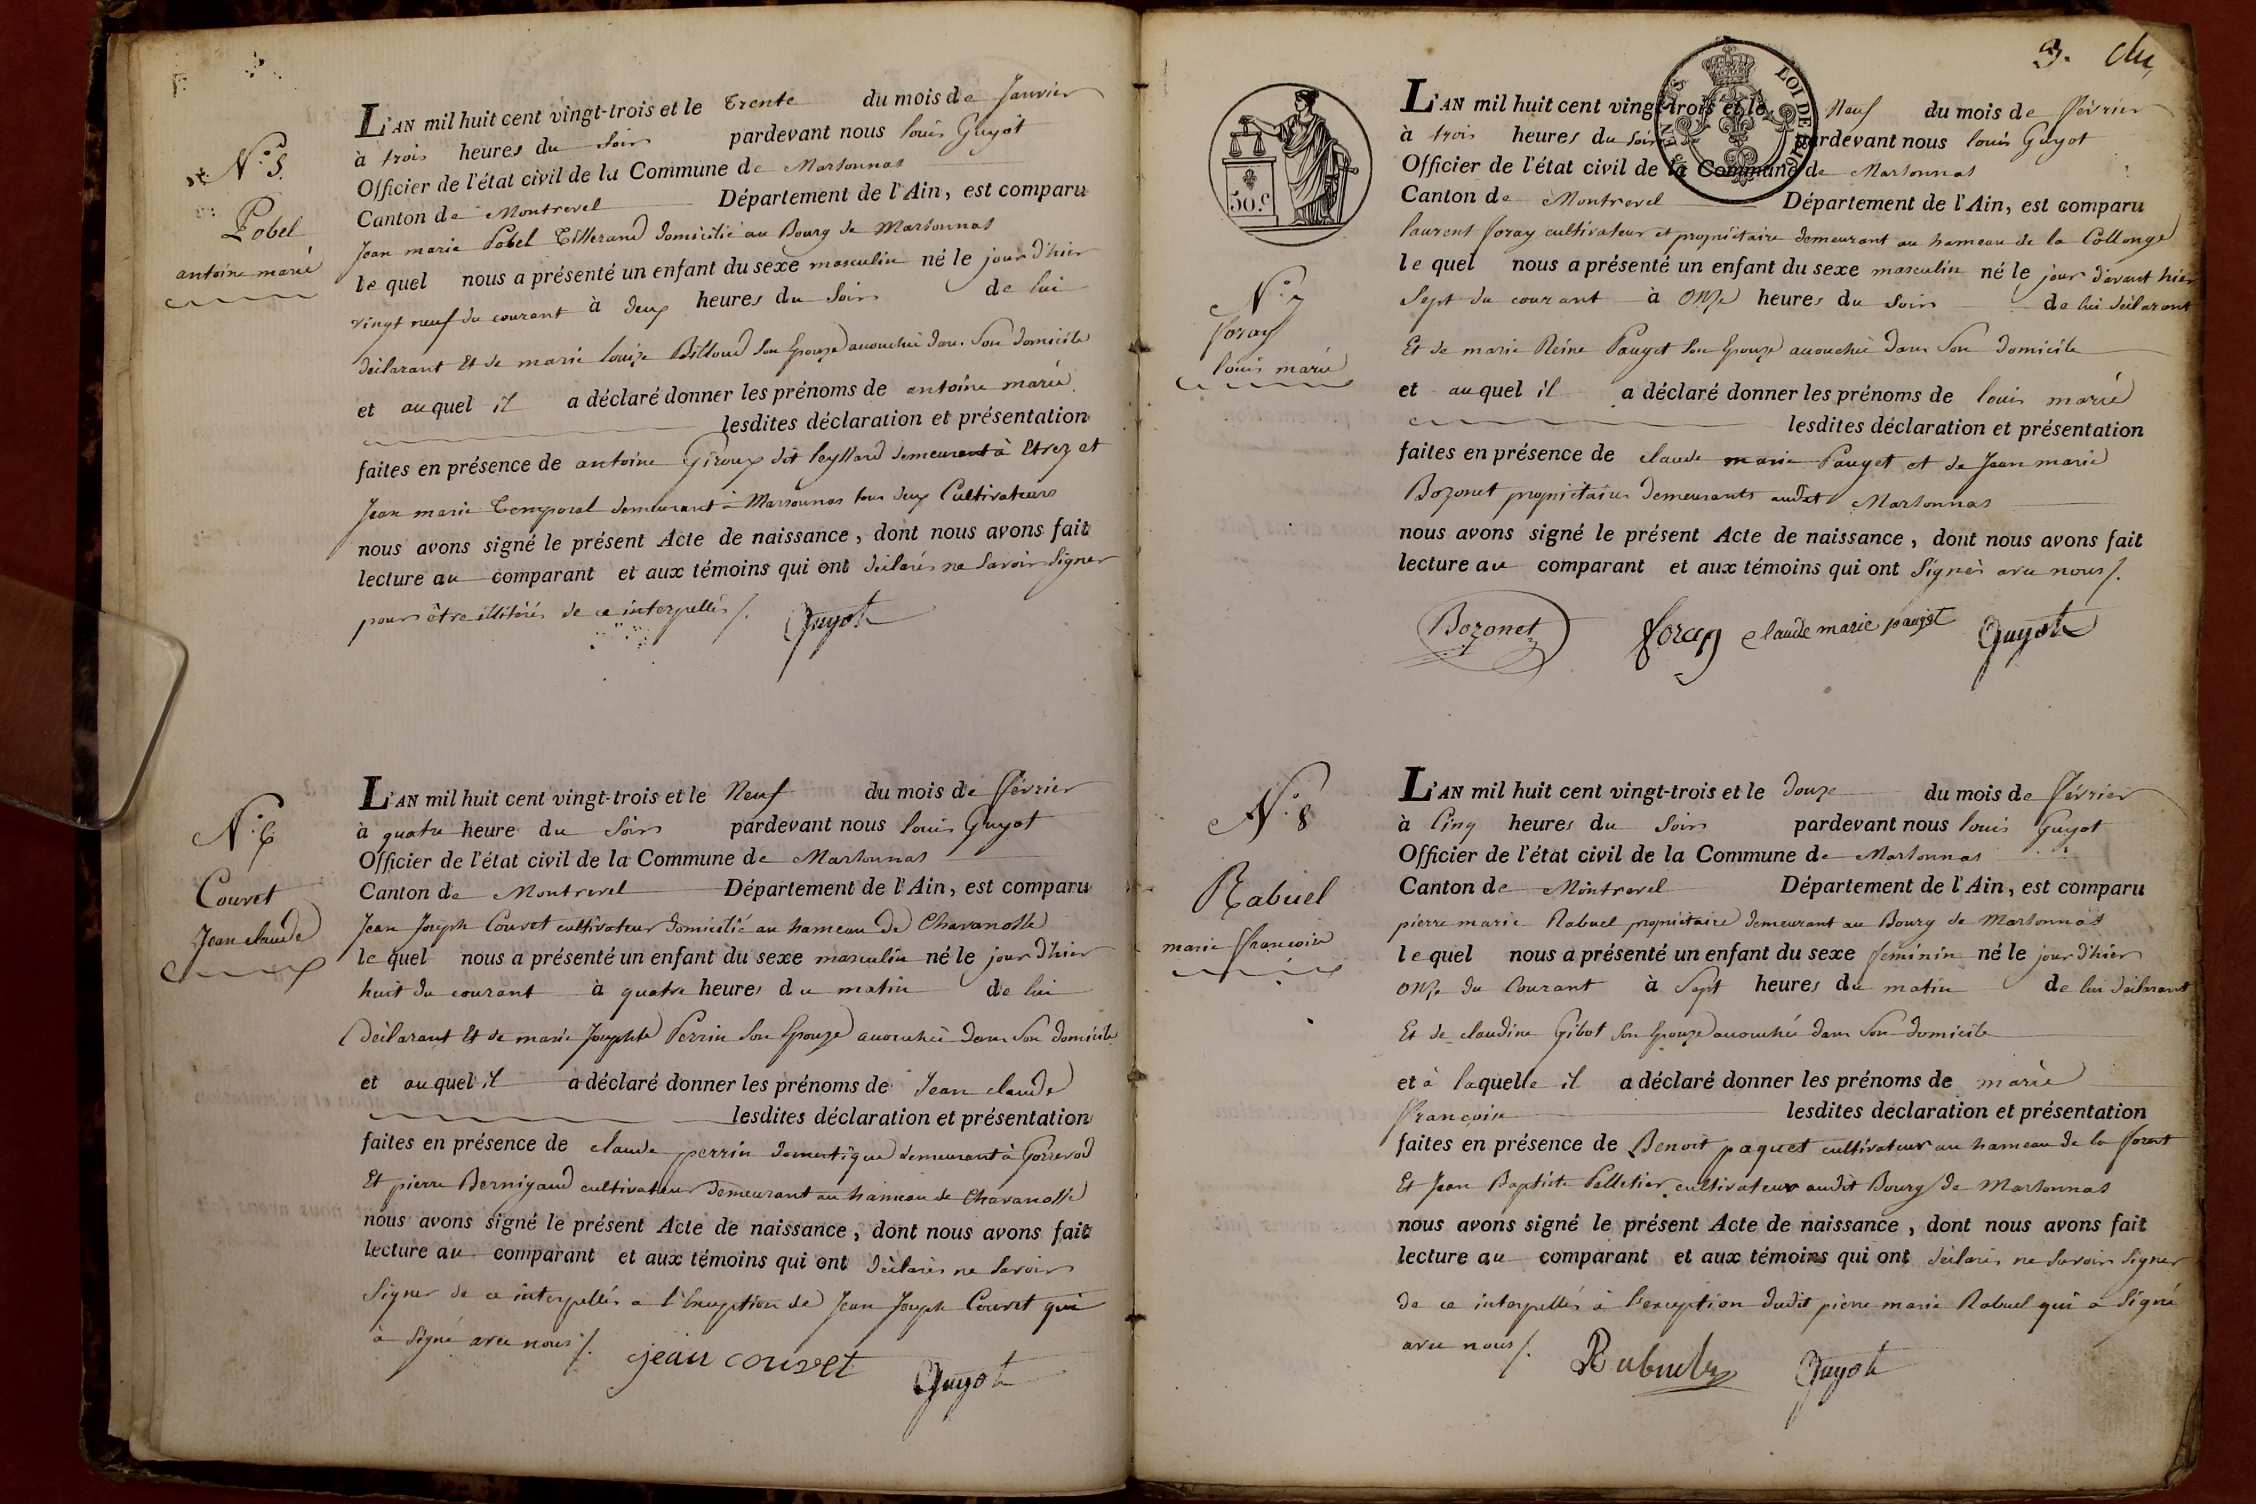 N.º 5.
Pobel
antoine marie
L'AN mil huit cent vingt-trois et le Trente du mois de Janvier
à trois heures du Soir pardevant nous louis Guyot
Officier de l'état civil de la Commune de Marsonnas
Canton de Montrevel Département de l'Ain, est comparu
Jean marie Pobel Tisserand domicilié au Bourg de Marsonnas
le quel nous a présenté un enfant du sexe masculin né le jour d'hier
vingt neuf du courant à deux heures du Soir de lui
déclarant Et de marie louise Billoud Son Epouze accouchée dans Son domicile
et auquel il a déclaré donner les prénoms de antoine marie
lesdites déclaration et présentation
faites en présence de antoine Giroux dit leyssard demeurant à Etrez et
Jean marie Temporal demeurant à Marsonnas tous deux Cultivateurs
nous avons signé le présent Acte de naissance, dont nous avons fait
lecture au comparant et aux témoins qui ont déclarés ne Savoir Signer
pour être illitérés de ce interpellés /.
Guyot
N.º 6
Couvet
Jean claude
L'AN mil huit cent vingt-trois et le Neuf du mois de février
à quatre heure du Soir pardevant nous louis Guyot
Officier de l'état civil de la Commune de Marsonnas
Canton de Montrevel Département de l'Ain, est comparu
Jean Joseph Couvet cultivateur domicilié au hameau de Chavanosse
le quel nous a présenté un enfant du sexe masculin né le jour d'hier
huit du courant à quatre heures du matin de lui
déclarant Et de marie Josephte Perrin Son Epouze accouchée dans Son domicile
et auquel il a déclaré donner les prénoms de Jean claude
lesdites déclaration et présentation
faites en présence de claude perrin domestique demeurant à Gorrevod
Et pierre Bernigaud cultivateur demeurant au hameau de Chavanosse
nous avons signé le présent Acte de naissance, dont nous avons fait
lecture au comparant et aux témoins qui ont déclarés ne Savoir
Signer de ce interpellés a l'Exception de Jean Joseph Couvet qui
à Signé avec nous /.
jean couvet Guyot
3.
50.c
LOI DE
N.º 7
foray
louis marie
L'AN mil huit cent vingt-trois et le Neuf du mois de février
à trois heures du Soir pardevant nous louis Guyot
Officier de l'état civil de la Commune de Marsonnas
Canton de Montrevel Département de l'Ain, est comparu
laurent foray cultivateur et propriétaire demeurant au hameau de la Collonge
le quel nous a présenté un enfant du sexe masculin né le jour d'avant hier
Sept du courant à onze heures du Soir de lui déclarant
Et de marie Reine Pauget Son Epouze accouchée dans Son domicile
et auquel il a déclaré donner les prénoms de louis marie
lesdites déclaration et présentation
faites en présence de claude marie Pauget et de Jean marie
Bozonet propriétaires demeurants audit Marsonnas
nous avons signé le présent Acte de naissance, dont nous avons fait
lecture au comparant et aux témoins qui ont Signés avec nous /.
Bozonet foray claude marie pauget Guyot
N.º 8
Rabuel
marie françoise
L'AN mil huit cent vingt-trois et le douze du mois de février
à Cinq heures du Soir pardevant nous louis Guyot
Officier de l'état civil de la Commune de Marsonnas
Canton de Montrevel Département de l'Ain, est comparu
pierre marie Rabuel propriétaire demeurant au Bourg de Marsonnas
le quel nous a présenté un enfant du sexe féminin né le jour d'hier
onze du Courant à Sept heures du matin de lui déclarant
Et de claudine Gibot Son Epouze accouchée dans Son domicile
et à laquelle il a déclaré donner les prénoms de marie
françoise lesdites déclaration et présentation
faites en présence de Benoit paquet cultivateur au hameau de la forest
Et Jean Baptiste Pelletier cultivateur audit Bourg de Marsonnas
nous avons signé le présent Acte de naissance, dont nous avons fait
lecture au comparant et aux témoins qui ont déclarés ne Savoir Signer
de ce interpellés à l'exception dudit pierre marie Rabuel qui a Signé
avec nous /.
Rabuel Guyot